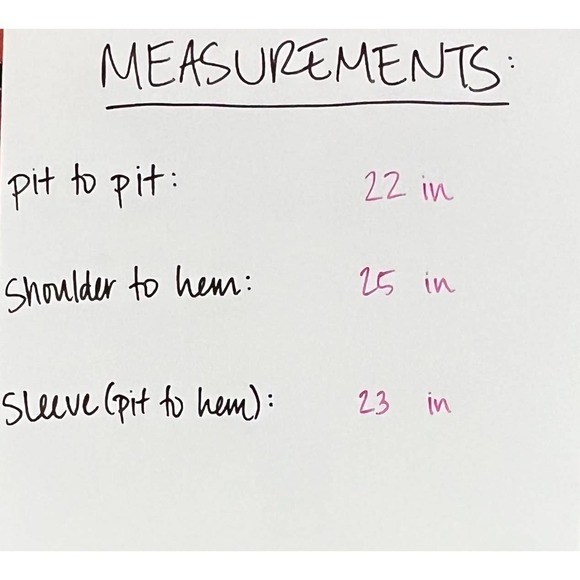 MEASUREMENTS:
pit to pit: 22 in
shoulder to hem: 25 in
sleeve (pit to hem): 23 in